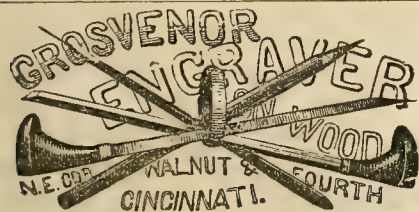 GROSVENOR
ENGRAVER
ON WOOD
N.E. COR. WALNUT & FOURTH
CINCINNATI.